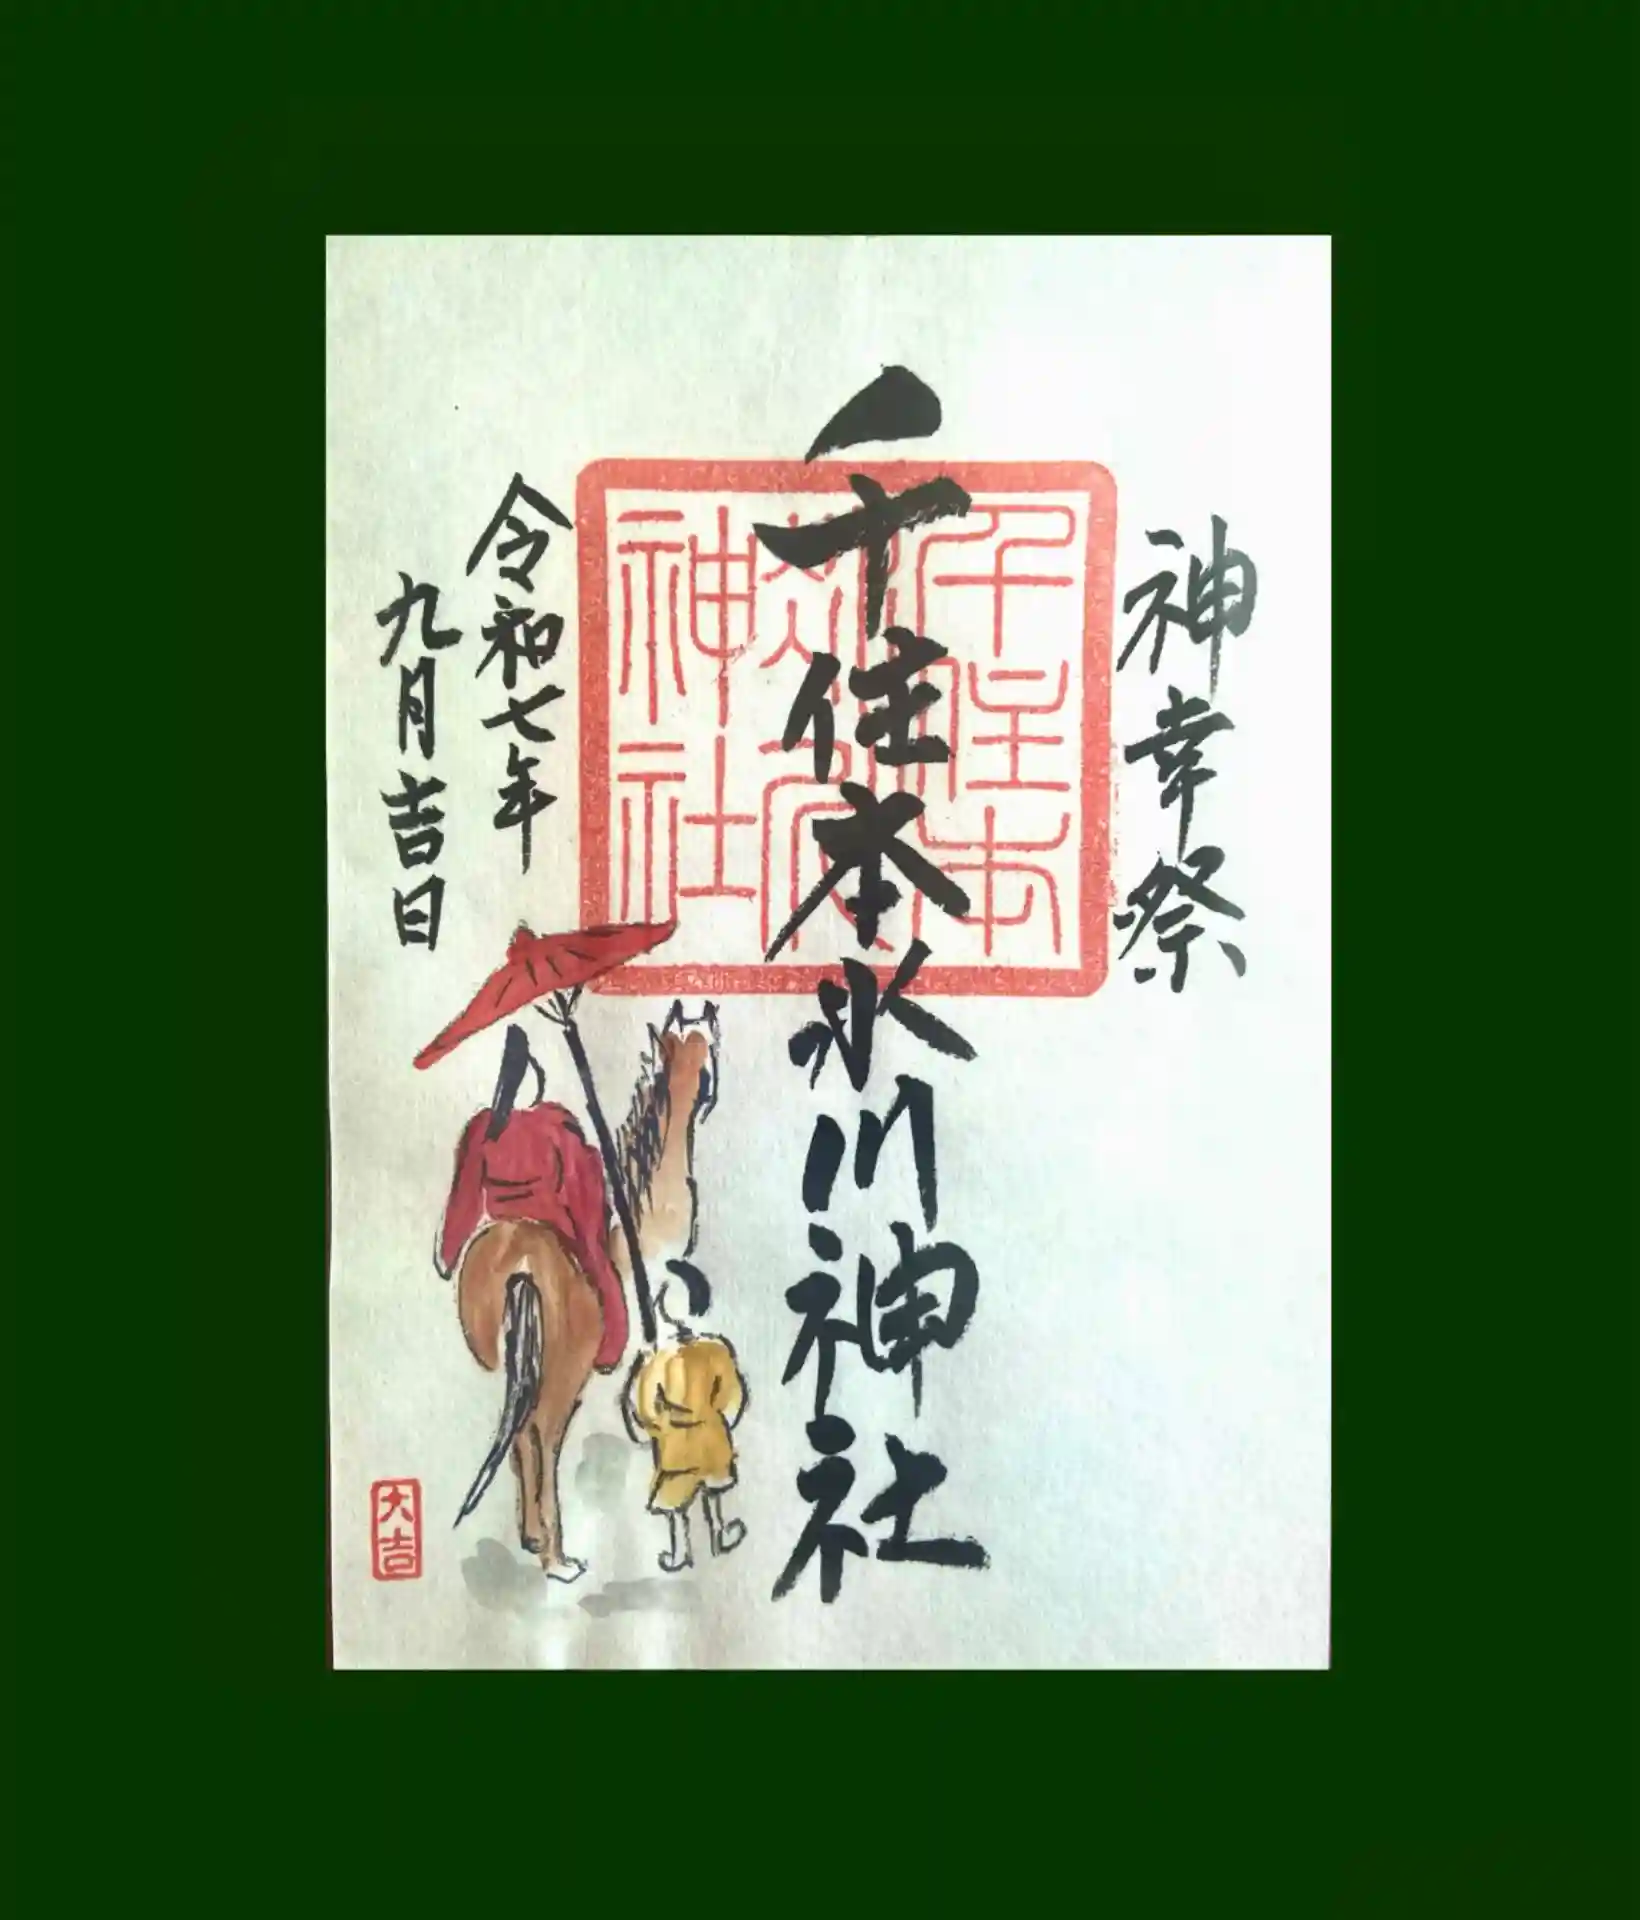 神幸祭
千住本氷川神社
千住本氷川神社
令和七年
九月吉日
大吉